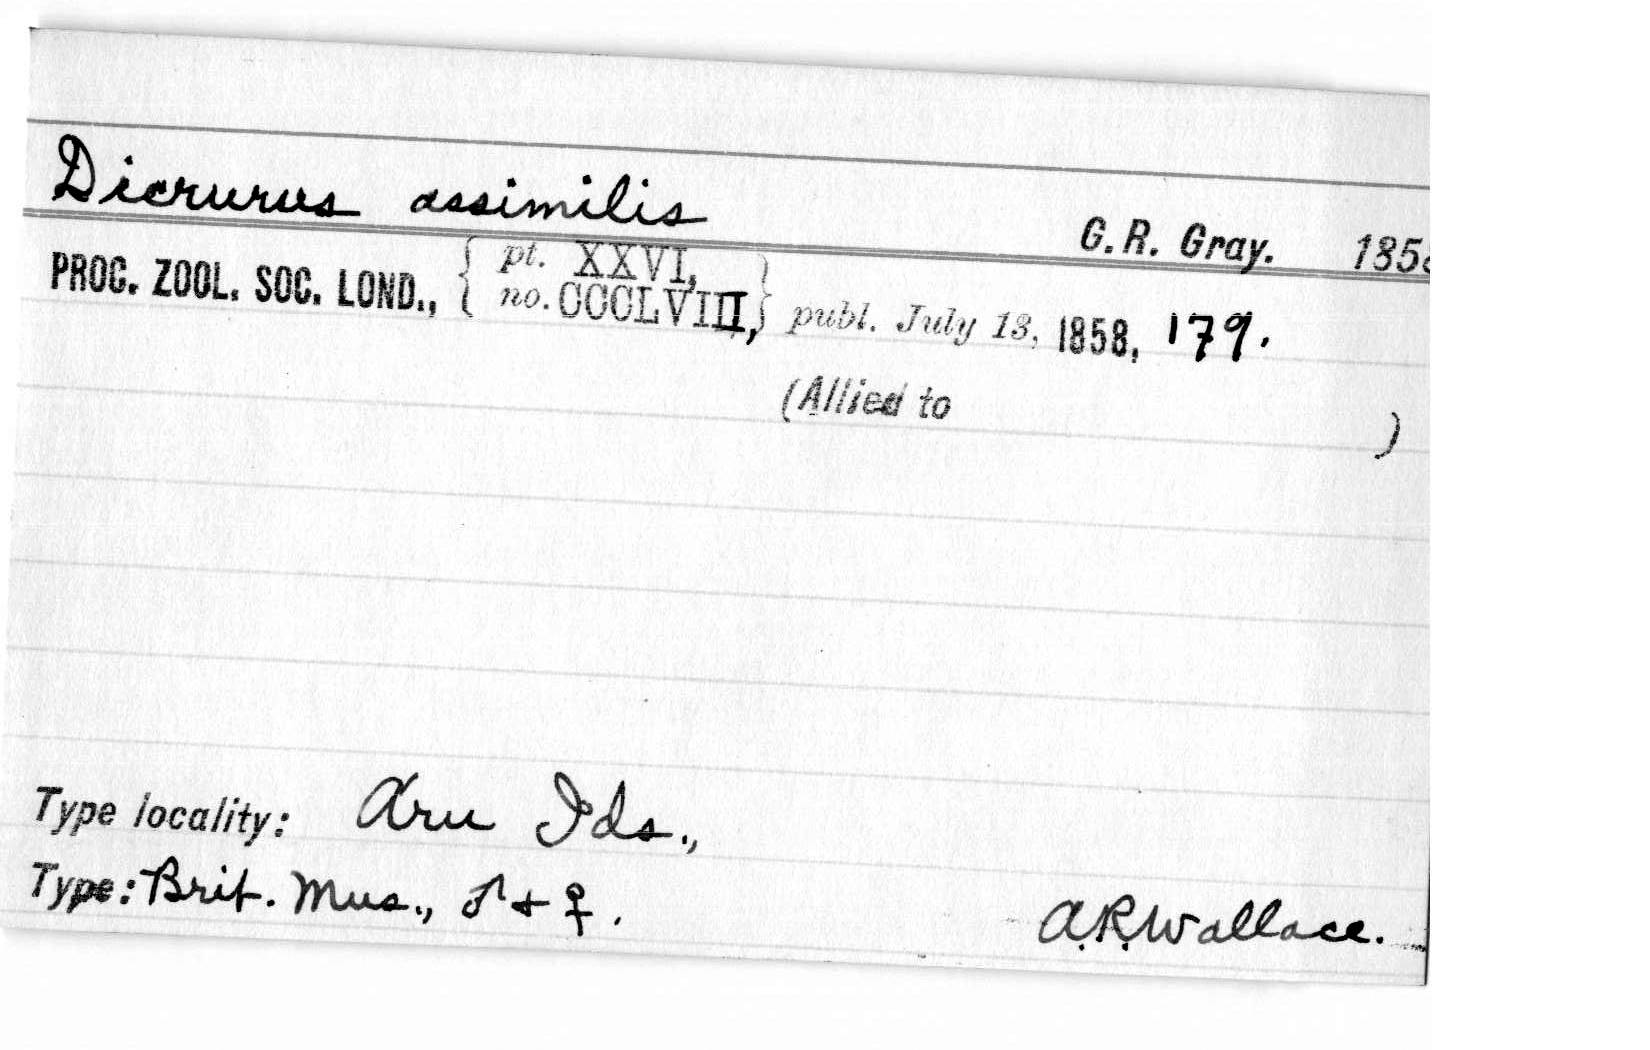 Dicrurus assimilis G. R. Gray. 1858
PROC. ZOOL. SOC. LOND., { pt. XXVI, no. CCCLVIII, } publ. July 13, 1858, 179.
(Allied to )
Type locality: Aru Ids.,
Type: Brit. Mus., ♂ + ♀. A.R.Wallace.